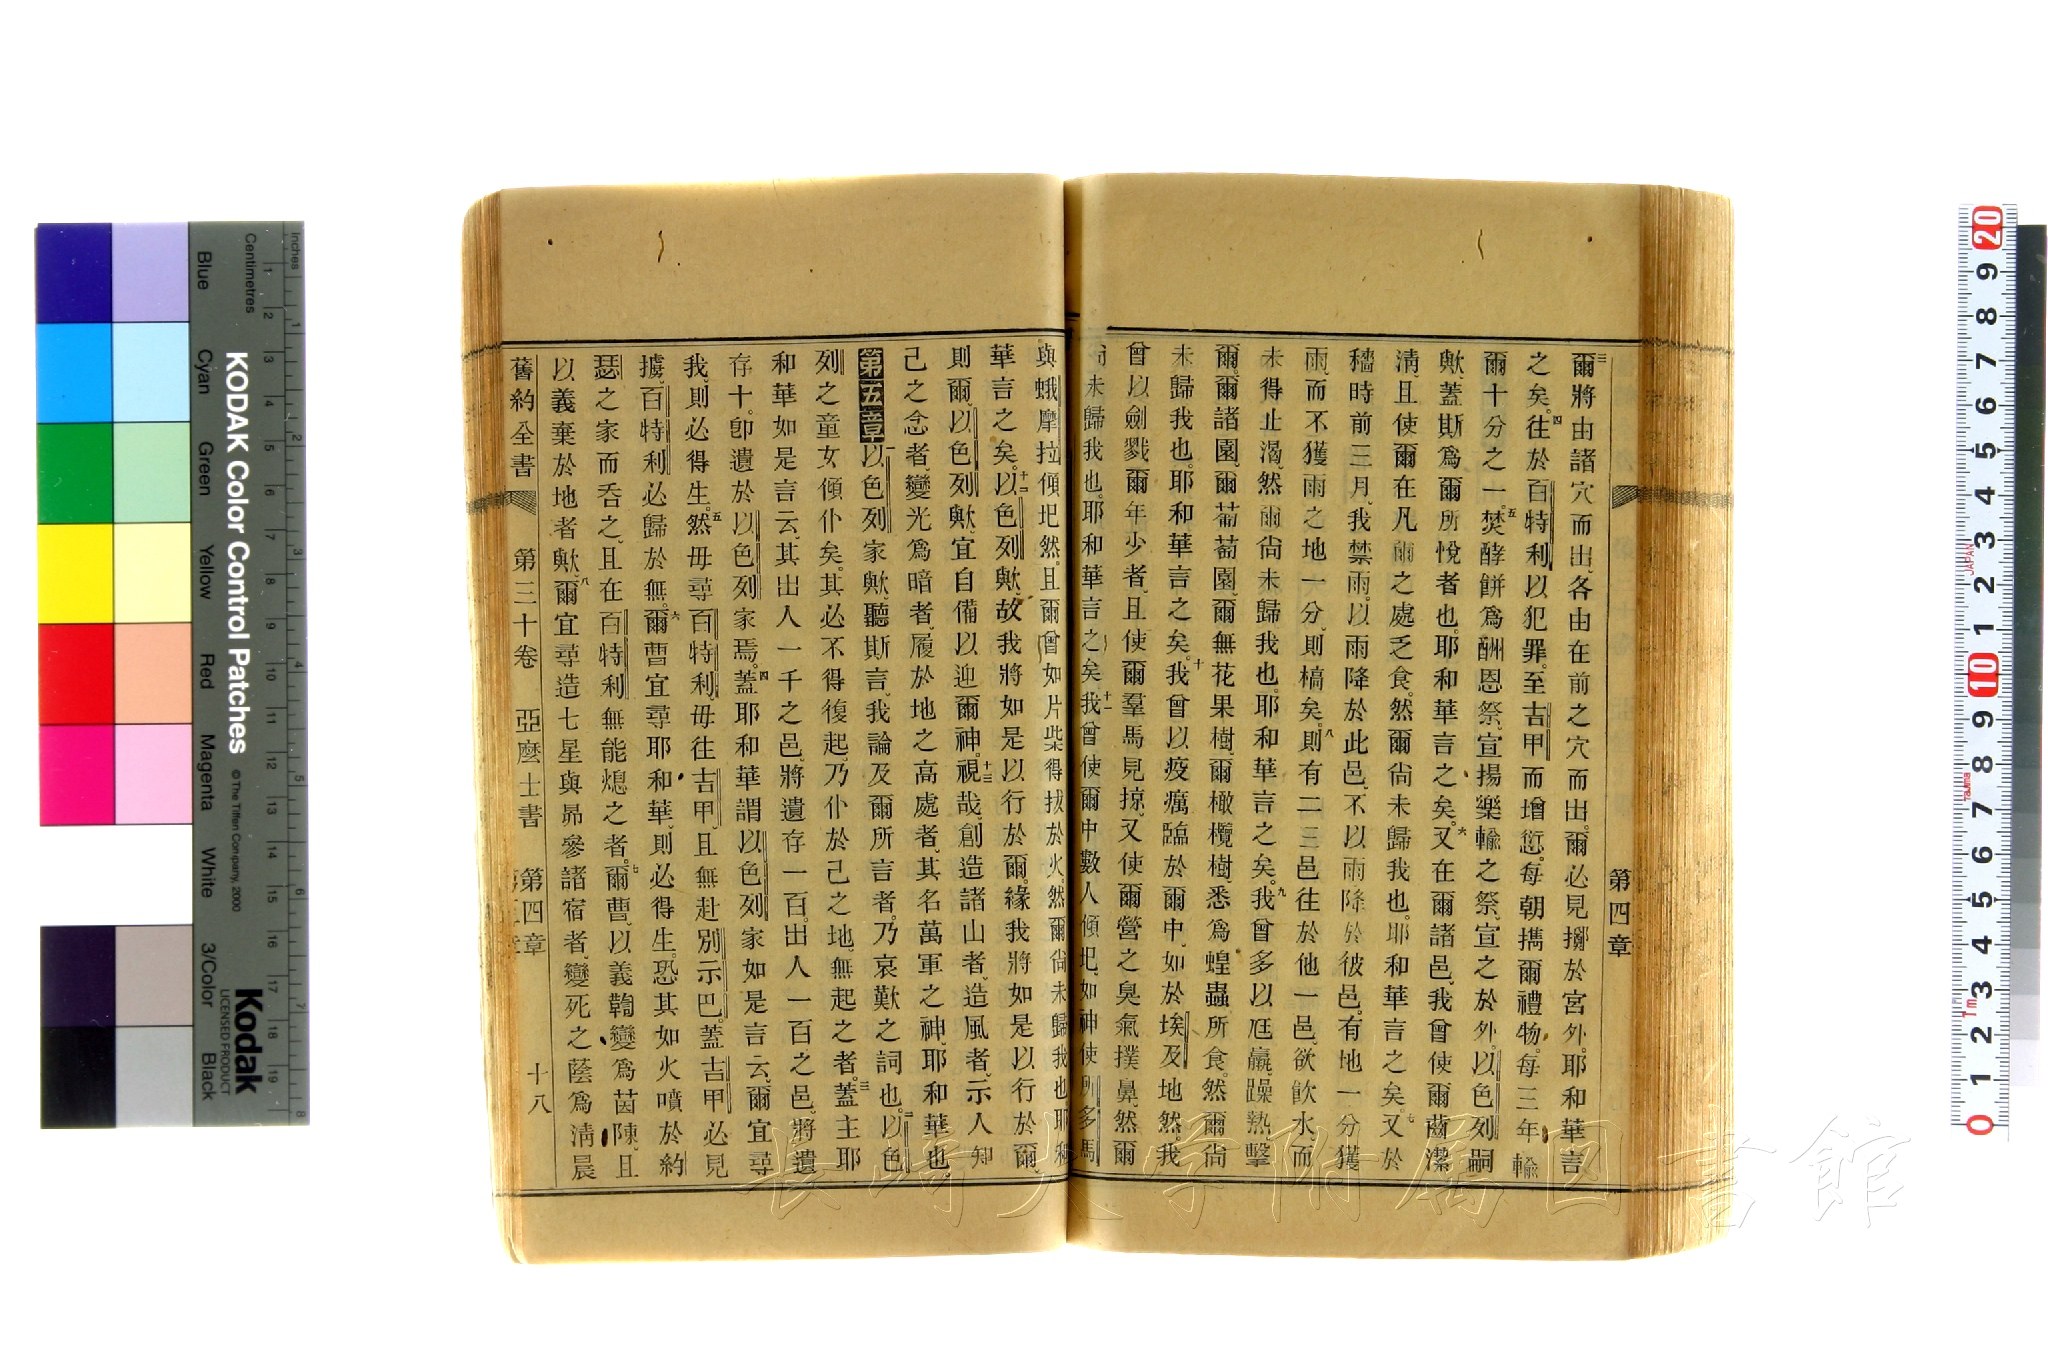 第四章
爾將由諸穴而出、各由在前之穴而出。爾必見擲於宮外。耶和華言
之矣。往於百特利以犯罪。至吉甲而增愆。每朝攜爾禮物。每三年輸
爾十分之一。焚酵餅爲酬恩祭、宣揚樂輸之祭。宣之於外。以色列嗣
歟、蓋斯爲爾所悅者也。耶和華言之矣。又在爾諸邑、我曾使爾齒潔
淸、且使爾在凡爾之處乏食。然爾尙未歸我也。耶和華言之矣。又於
穡時前三月、我禁雨。以雨降於此邑、不以雨降於彼邑。有地一分獲
雨、而不獲雨之地一分、則槁矣。則有二三邑往於他一邑、欲飮水、而
未得止渴。然爾尙未歸我也。耶和華言之矣。我曾多以尪羸、躁熱、擊
爾。爾諸園、爾葡萄園、爾無花果樹、爾橄欖樹悉爲蝗蟲所食。然爾尙
未歸我也。耶和華言之矣。我曾以疫癘臨於爾中、如於埃及地然。我
曾以劍戮爾年少者、且使爾羣馬見掠、又使爾營之臭氣撲鼻、然爾
尙未歸我也。耶和華言之矣。我曾使爾中數人傾圯、如神使所多馬
與蛾摩拉傾圯然。且爾曾如片柴得拔於火。然爾尙未歸我也耶和
華言之矣。以色列歟、故我將如是以行於爾。緣我將如是以行於爾、
則爾、以色列歟、宜自備以迎爾神。視哉、創造諸山者、造風者、示人知
己之念者、變光爲暗者、履於地之高處者、其名萬軍之神、耶和華也
第五章 以色列家歟、聽斯言、我論及爾所言者、乃哀歎之詞也。以色
列之童女傾仆矣。其必不得復起、乃仆於己之地、無起之者。蓋主耶
和華如是言云、其出人一千之邑、將遺存一百。出人一百之邑、將遺
存十。卽遺於以色列家焉。蓋耶和華謂以色列家如是言云、爾宜尋
我、則必得生。然毋尋百特利、毋往吉甲、且無赴別示巴。蓋吉甲必見
擄、百特利必歸於無。爾曹宜尋耶和華、則必得生。恐其如火噴於約
瑟之家而呑之、且在百特利無能熄之者。爾曹、以義鞫變爲茵陳、且
以義棄於地者歟、爾宜尋造七星與昴參諸宿者、變死之蔭爲淸晨
舊約全書 第三十卷 亞麼士書 第四章 十八
KODAK Color Control Patches
© The Tiffen Company, 2000
Kodak
LICENSED PRODUCT
Inches
Centimetres
Blue
Cyan
Green
Yellow
Red
Magenta
White
3/Color
Black
長崎大学附属図書館